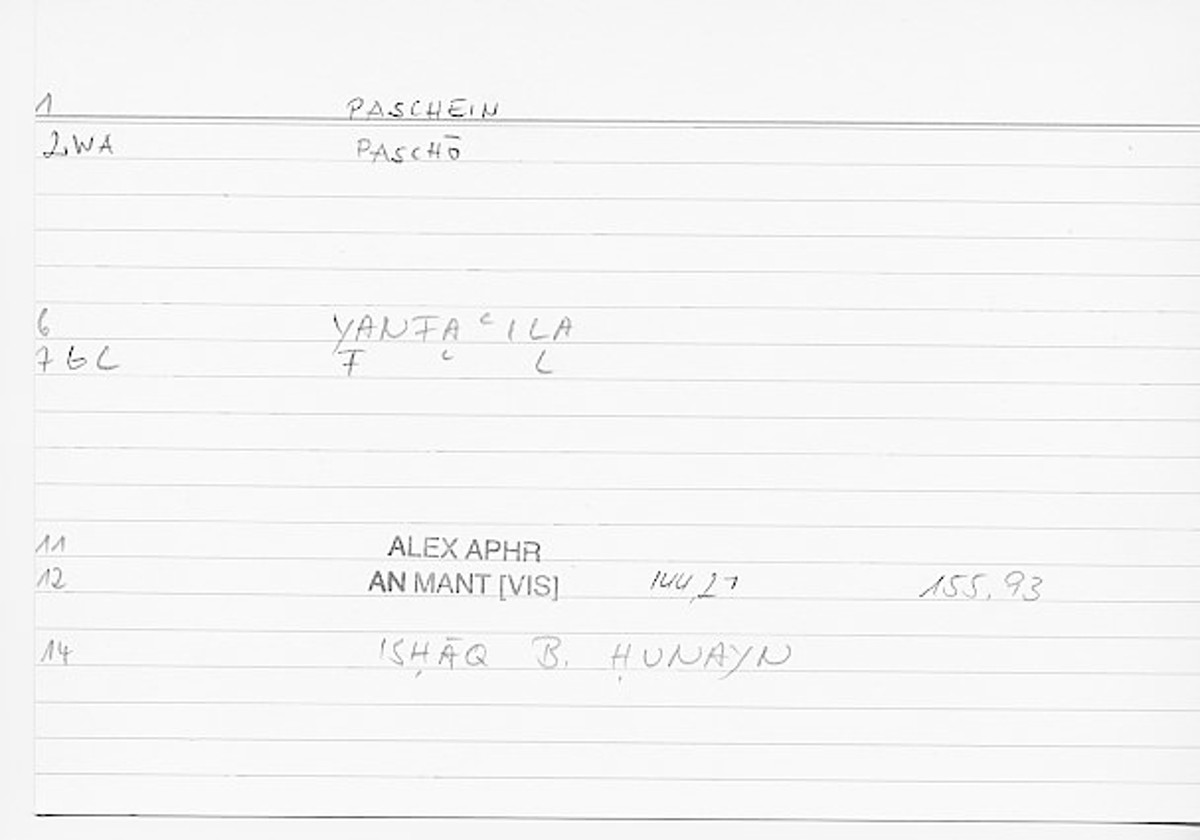 1 PASCHEIN
2 WA PASCHŌ
6 YANFAʿILA
7 GL F ʿ L
11 ALEX APHR
12 AN MANT [VIS] 144,21 155,93
14 ISḤĀQ B. ḤUNAYN